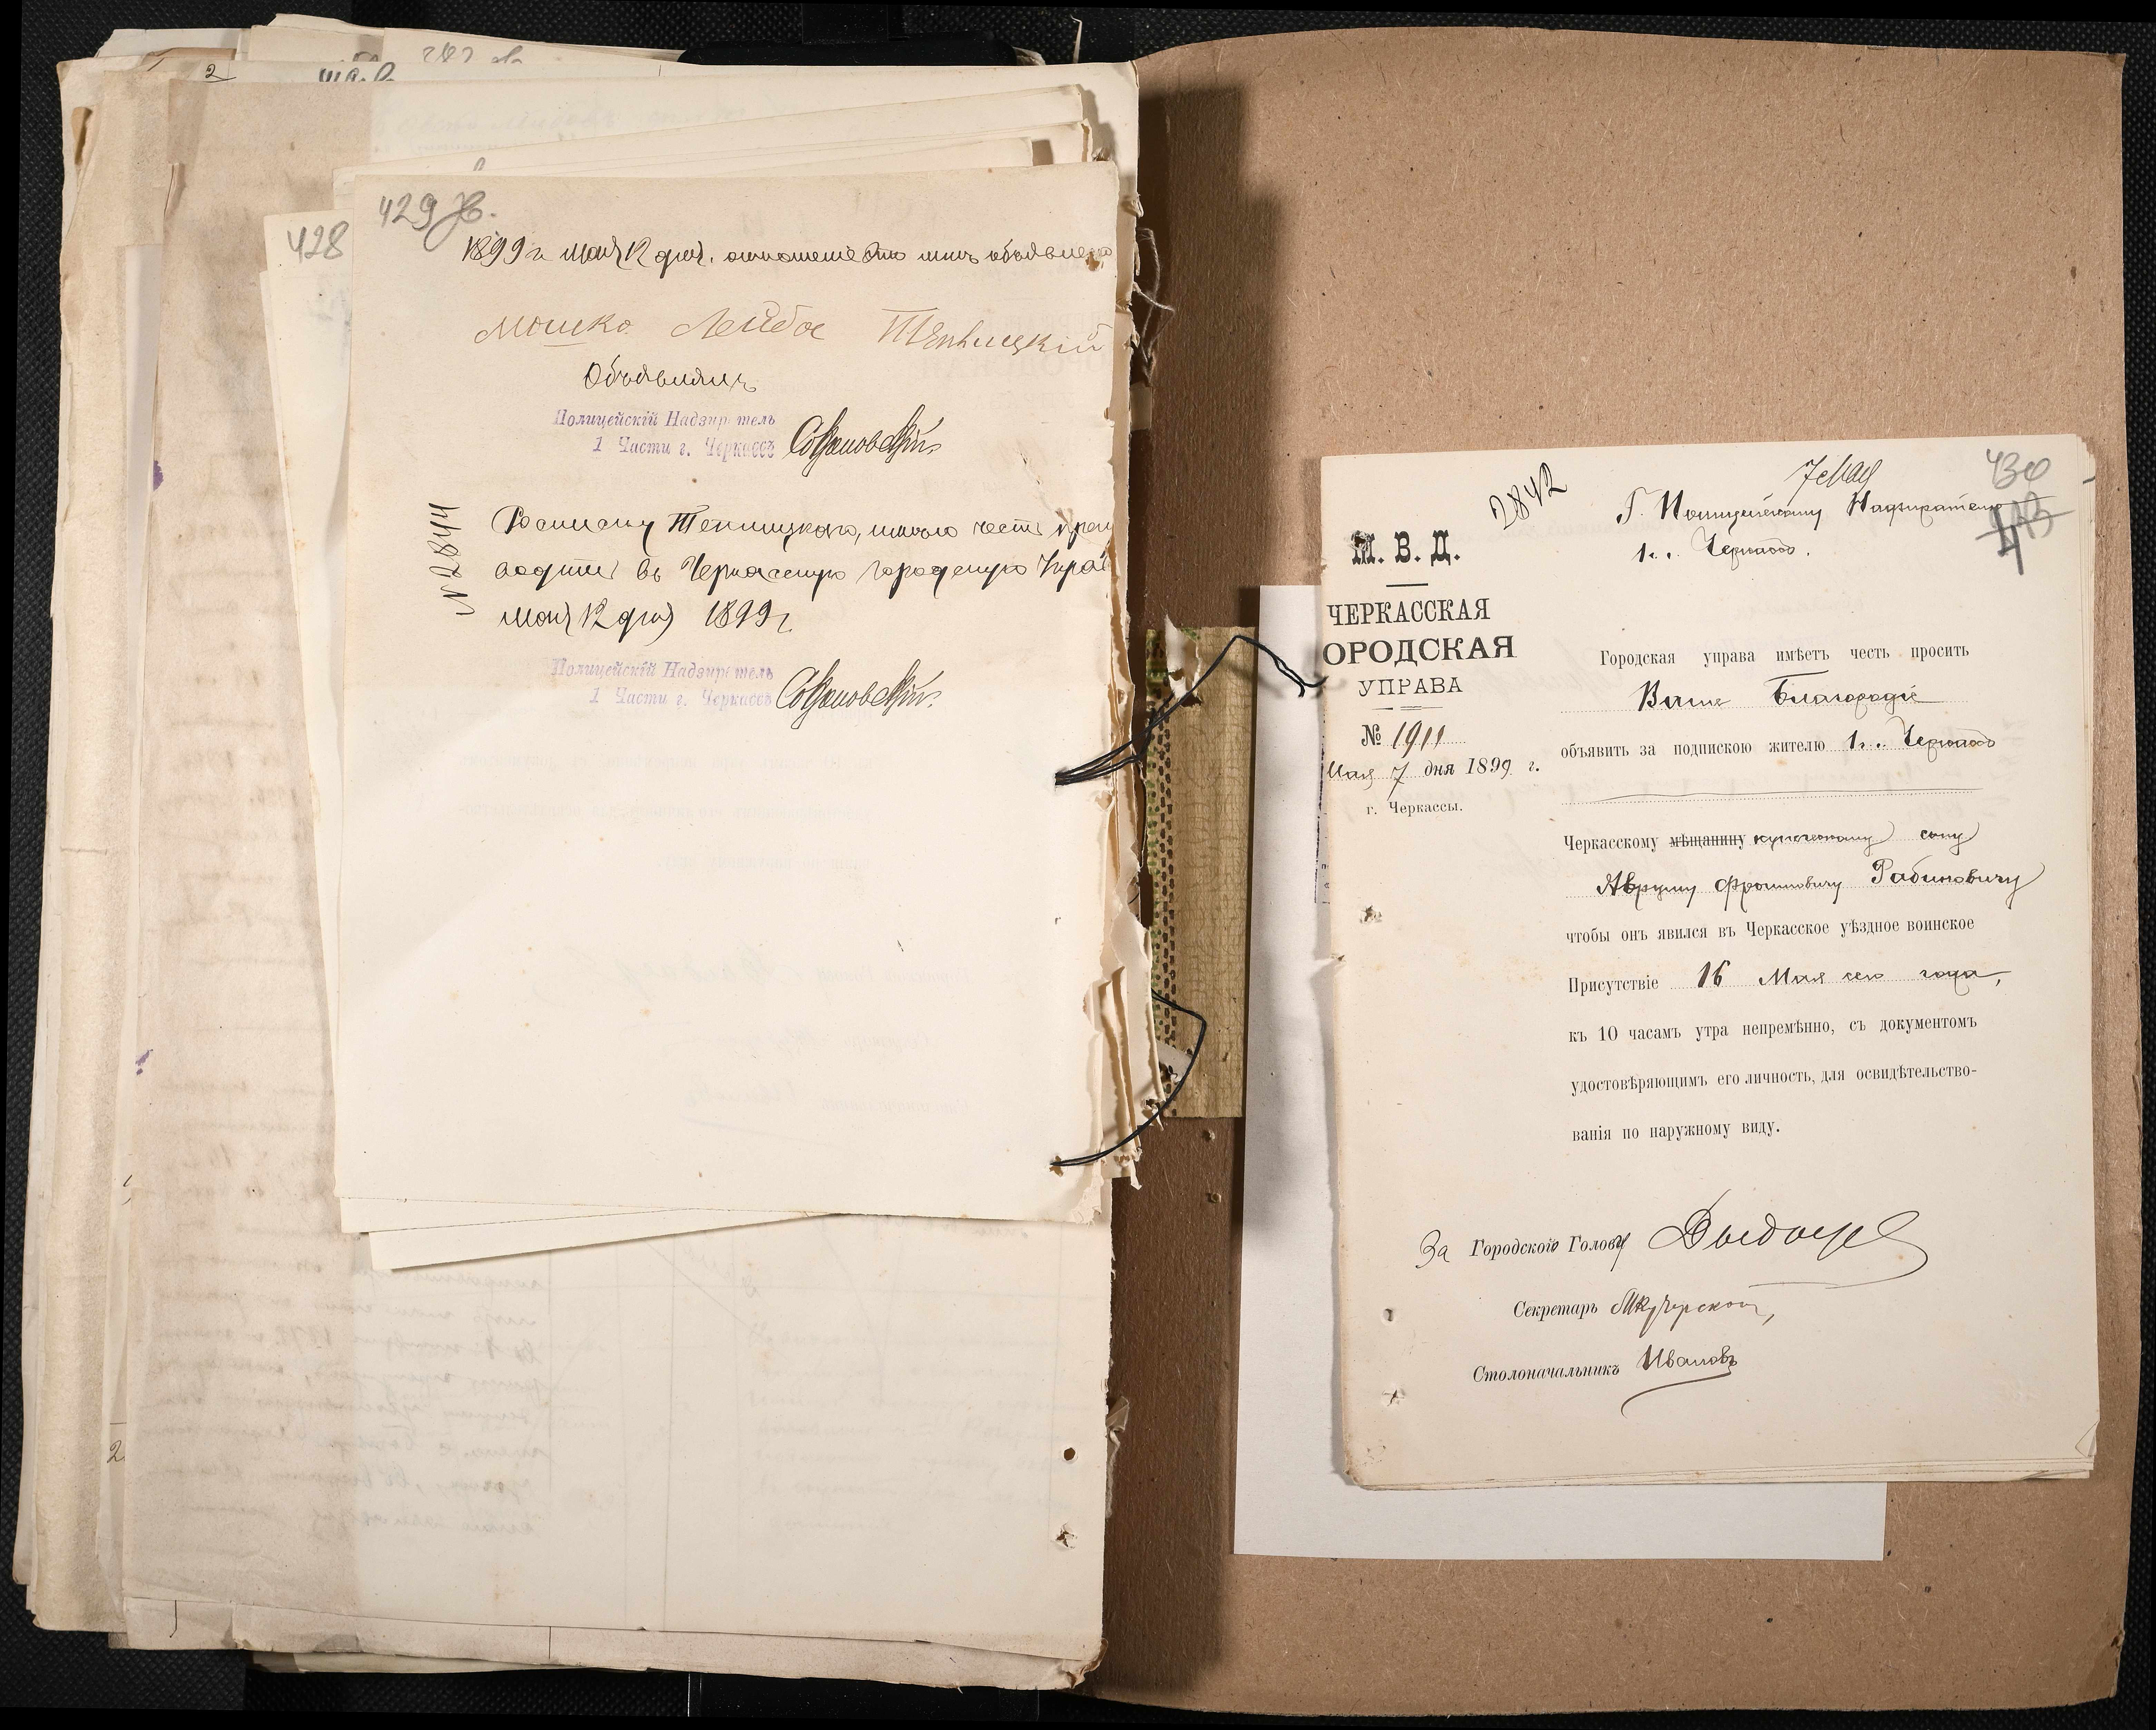 2
428
429 об.
1899 г. мая 12 дня. отношеніе это мнѣ объявлено
Мошко Лейба Теплицкій
Объявилъ
Полицейскій Надзиратель
1 Части г. Черкассъ
№ 2844
Росписку Теплицкого, имѣю честь препро
водить въ Черкасскую городскую Управ
мая 12 дня 1899 г.
Полицейскій Надзиратель
1 Части г. Черкассъ
430
2842
7 Мая
Г. Полицейскому Надзирателю
1 ч. г. Черкассъ.
М. В. Д.
ЧЕРКАССКАЯ
ОРОДСКАЯ
УПРАВА
№ 1911
Мая 7 дня 1899 г.
г. Черкассы.
Городская управа имѣетъ честь просить
Ваше Благородіе
объявить за подпискою жителю г. Черкассъ
Черкасскому мѣщанину купеческому сыну
Авруму Фроимовичу Рабиновичу
чтобы онъ явился въ Черкасское уѣздное воинское
Присутствіе 16 Мая сего года,
къ 10 часамъ утра непремѣнно, съ документомъ
удостовѣряющимъ его личность, для освидѣтельство-
ванія по наружному виду.
За Городского Голову
Секретарь
Столоначальникъ Ивановъ